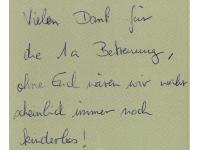 Vielen Dank für
die 1a Betreuung,
ohne Euch wären wir wahr
scheinlich immer noch
kinderlos!